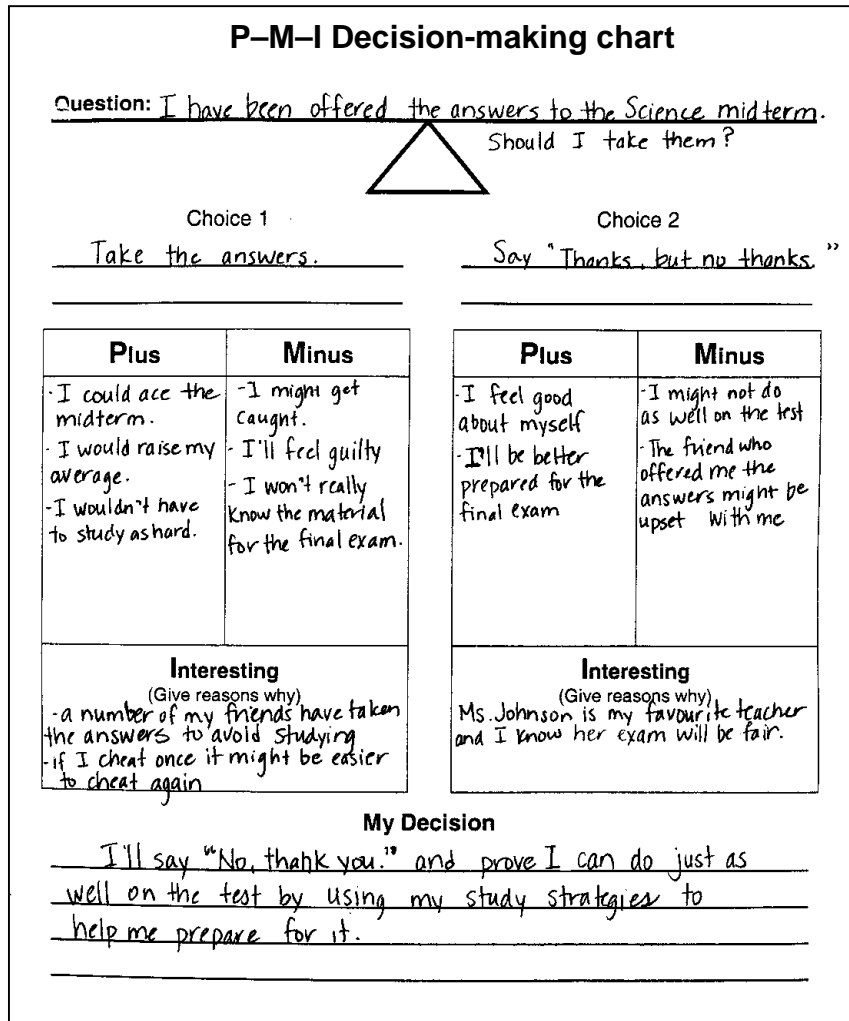 P–M–I Decision-making chart
Question: I have been offered the answers to the Science midterm.
Should I take them?
Choice 1
Take the answers.
Choice 2
Say "Thanks, but no thanks."
Plus
- I could ace the
midterm.
- I would raise my
average.
- I wouldn't have
to study as hard.
Minus
- I might get
caught.
- I'll feel guilty
- I won't really
know the material
for the final exam.
Interesting
(Give reasons why)
- a number of my friends have taken
the answers to avoid studying
- if I cheat once it might be easier
to cheat again
Plus
- I feel good
about myself
- I'll be better
prepared for the
final exam
Minus
- I might not do
as well on the test
- The friend who
offered me the
answers might be
upset with me
Interesting
(Give reasons why)
Ms. Johnson is my favourite teacher
and I know her exam will be fair.
My Decision
I'll say "No, thank you." and prove I can do just as
well on the test by using my study strategies to
help me prepare for it.